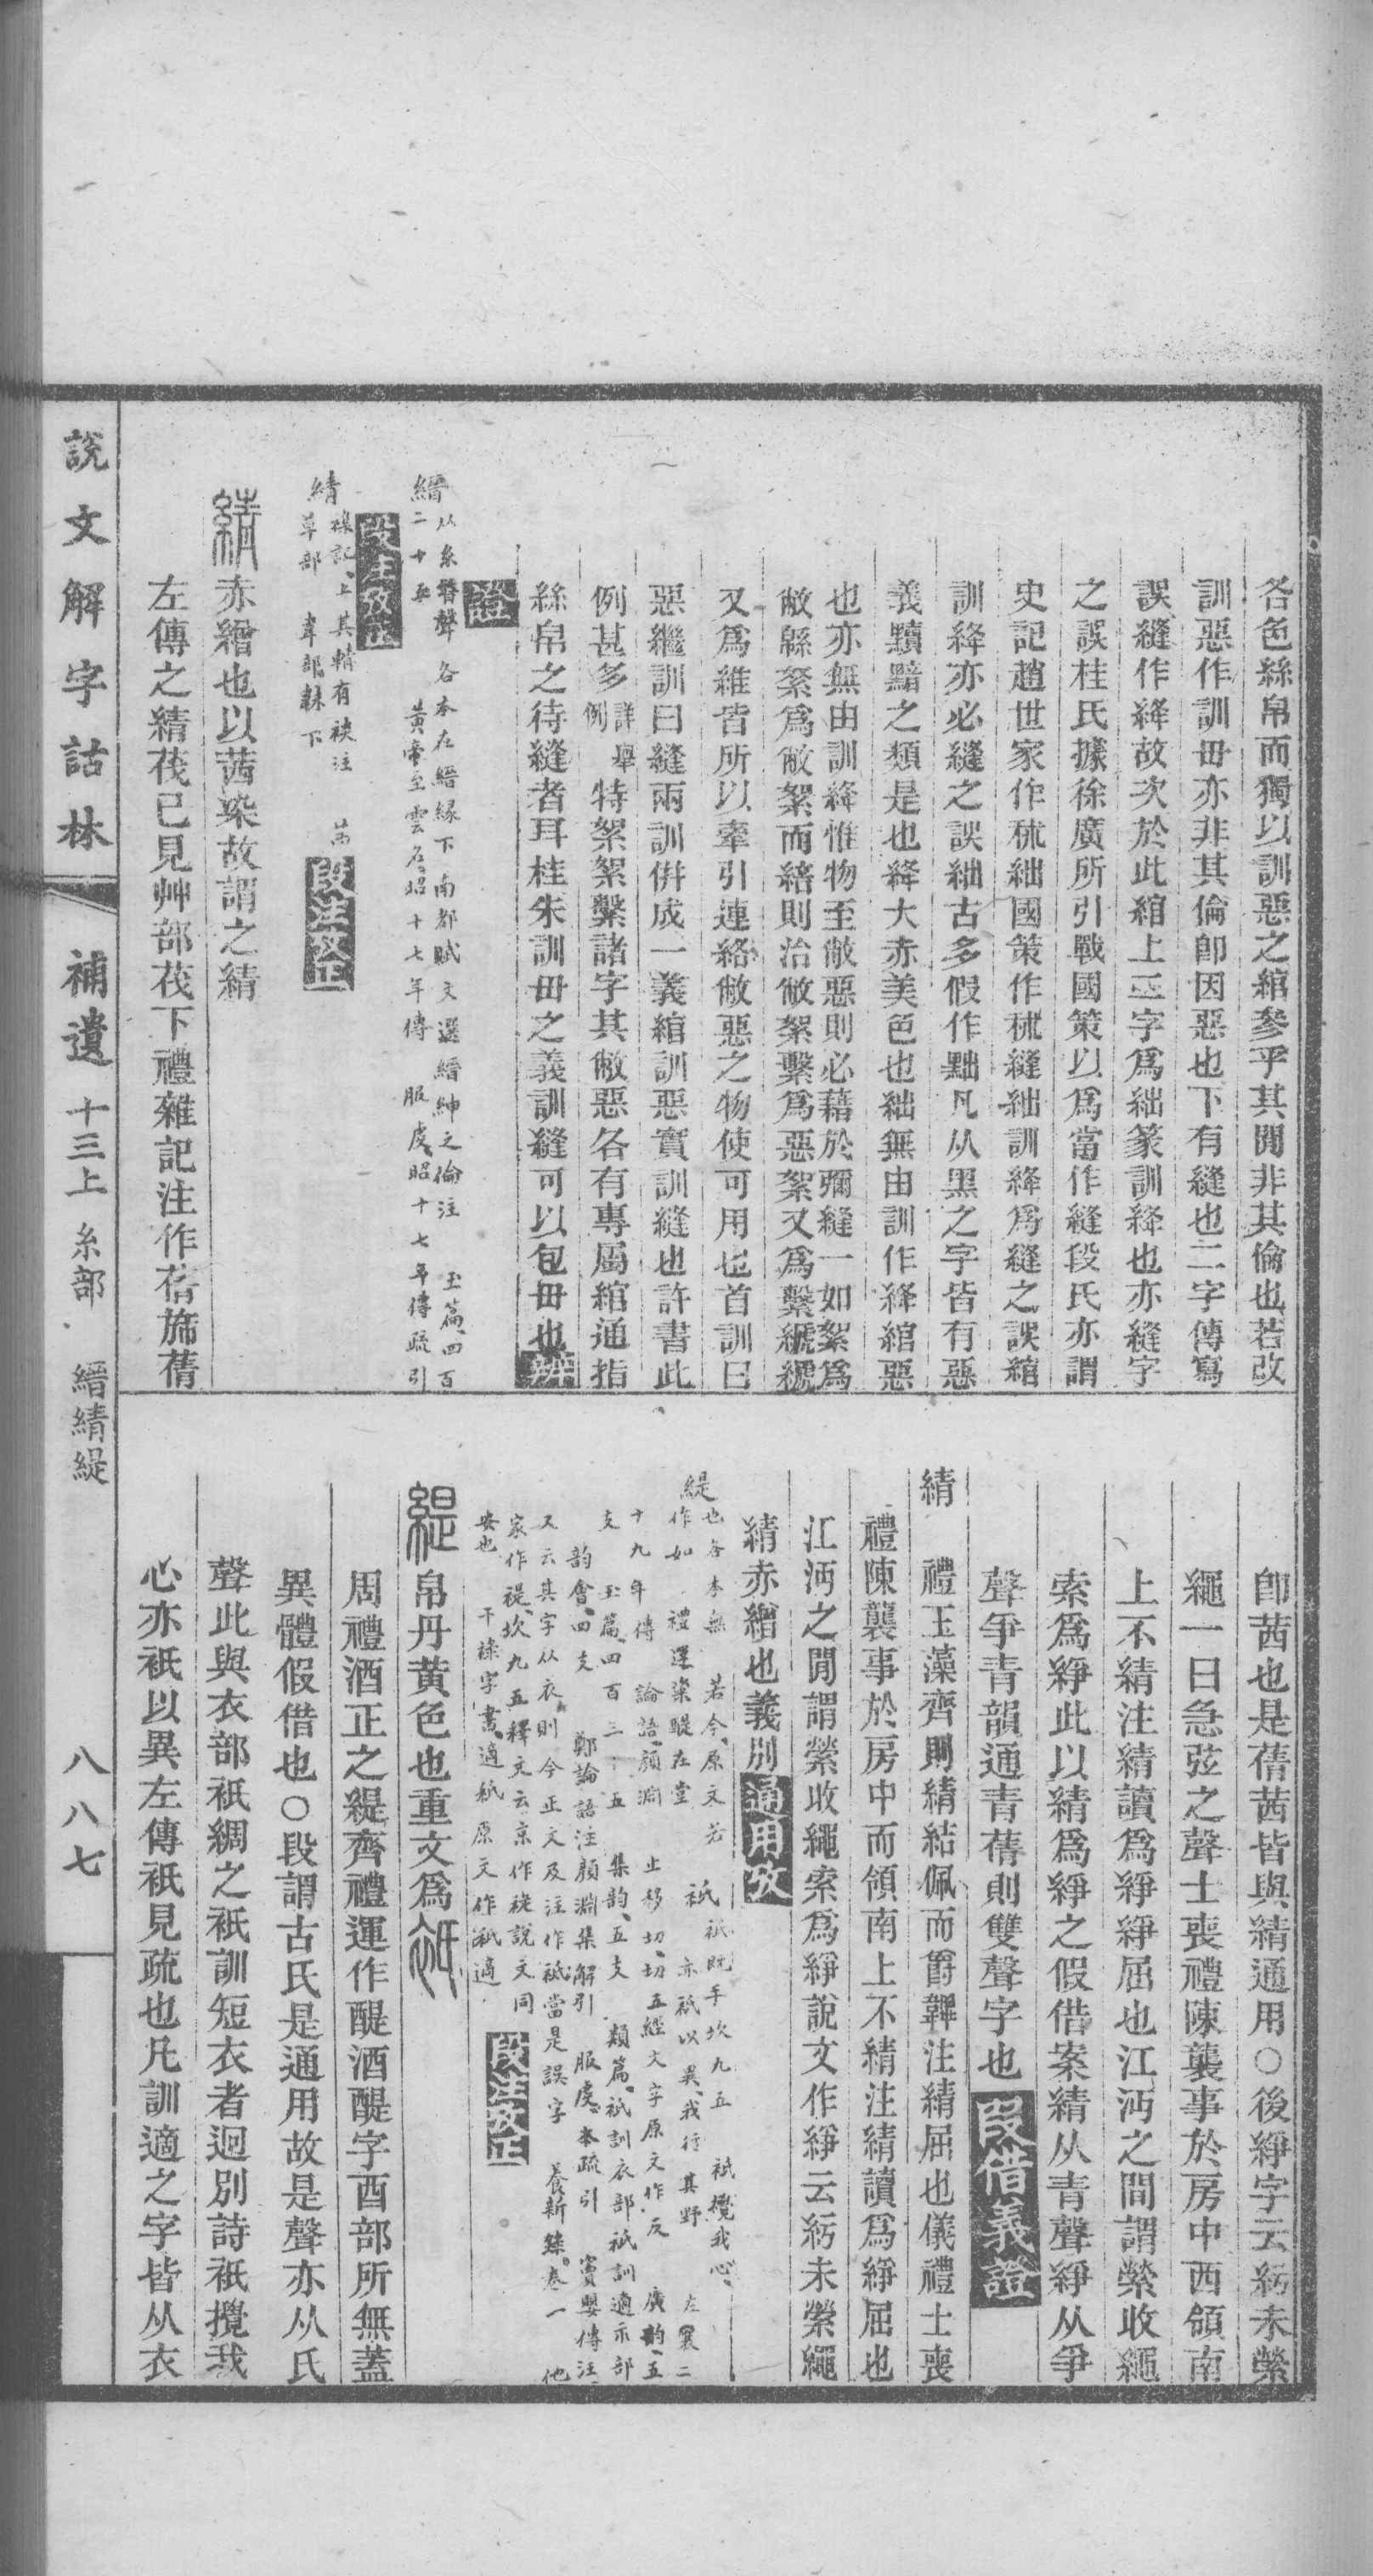 各色絲帛而獨以訓惡之綰參乎其閒非其倫也若改
訓惡作訓毌亦非其倫卽因惡也下有縫也二字傳寫
誤縫作絳故次於此綰上𠄞字爲絀篆訓絳也亦縫字
之誤桂氏據徐廣所引戰國策以爲當作縫段氏亦謂
史記趙世家作秫絀國策作秫縫絀訓絳爲縫之誤綰
訓絳亦必縫之誤絀古多假作黜凡从黑之字皆有惡
義黷黯之類是也絳大赤美色也絀無由訓作絳綰惡
也亦無由訓絳惟物至敝惡則必藉於彌縫一如絮爲
敝緜絮爲敝絮而綰則治敝絮繫爲惡絮又爲繫褫褫
又爲維皆所以牽引連絡敝惡之物使可用也首訓曰
惡繼訓曰縫兩訓併成一義綰訓惡實訓縫也許書此
例甚多詳舉例特絮絮繫諸字其敝惡各有專屬綰通指
絲帛之待縫者耳桂朱訓毌之義訓縫可以包毌也辨
證
縉从糸晉聲 各本在縉緣下南都賦文選縉紳之倫注 玉篇四百
二十五 黃帝至雲名昭十七年傳 服虔昭十七年傳疏引
段注攷正
綪雜記上其輤有裧注 茜
草部 韋部韎下 段注攷正
綪赤繒也以茜染故謂之綪
左傳之綪茷已見艸部茷下禮雜記注作蒨旆蒨
卽茜也是蒨茜皆與綪通用○後綪字云紆未縈
繩一曰急弦之聲士喪禮陳襲事於房中西領南
上不綪注綪讀爲䋫䋫屈也江沔之間謂縈收繩
索爲䋫此以綪爲䋫之假借案綪从青聲䋫从爭
聲爭青韻通青蒨則雙聲字也 叚借義證
綪 禮玉藻齊則綪結佩而爵韠注綪屈也儀禮士喪
禮陳襲事於房中而領南上不綪注綪讀爲䋫屈也
江沔之閒謂縈收繩索爲䋫說文作䋫云紆未縈繩
綪赤繒也義別通用攷
緹也各本無 若今原文若 祇祇旣平坎九五 祇攪我心 左襄二
作如 禮運粢醍在堂 亦祇以異我行其野
十九年傳 論語顏淵 止移切切五經文字原文作反 廣韵五
支 玉篇四百三十五 集韵五支 類篇祇訓衣部祇訓適示部
韵會四支 鄭論語注顏淵集解引 服虔本疏引 竇嬰傳注
又云其字从衣則今正文及注作祇當是誤字 養新錄卷一 他
家作禔坎九五釋文云京作禔說文同
安也 干祿字書適祇原文作祇適 段注攷正
緹帛丹黃色也重文爲祇
周禮酒正之緹齊禮運作醍酒醍字酉部所無蓋
異體假借也○段謂古氏是通用故是聲亦从氏
聲此與衣部祇裯之祇訓短衣者迥別詩祇攪我
心亦祇以異左傳祇見疏也凡訓適之字皆从衣
說文解字詁林 補遺 十三上 糸部 縉綪緹 八八七